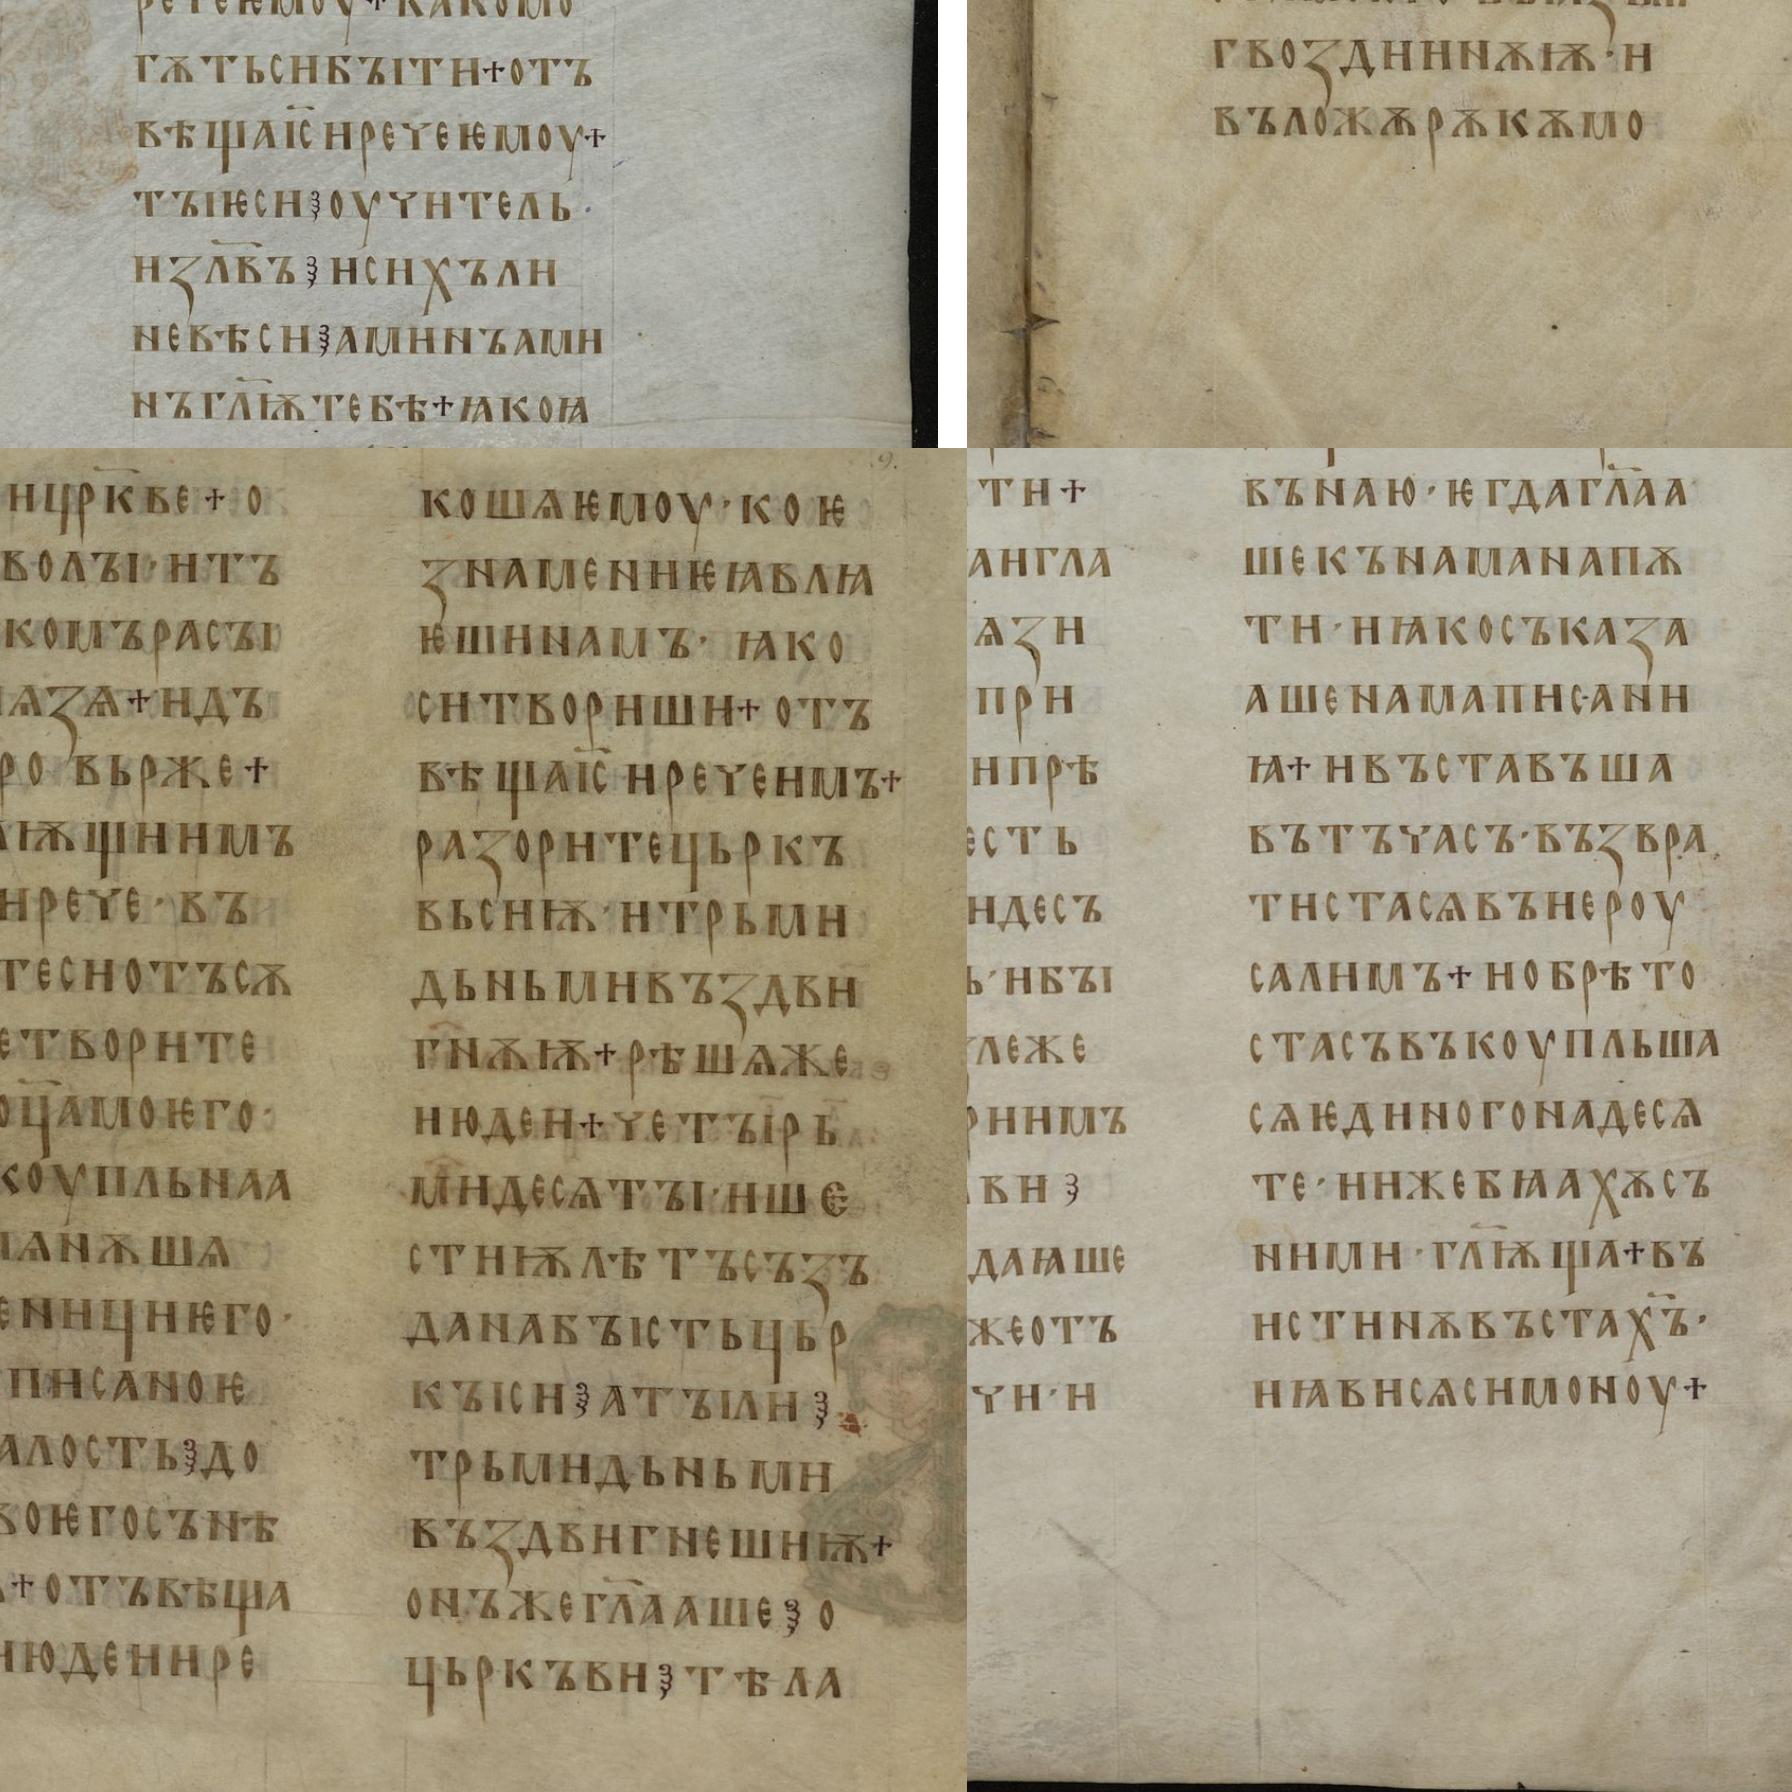 речеѥмоу+какомо
гѫтьсибꙑти+отъ
вѣщаіс҃иречеѥмоу+
тꙑѥси⸾оучитель·
изл҃въ⸾исихъли
невѣси⸾аминъами
нъгл҃ѭтебѣ+ꙗкоꙗ
гвоздиинѫѭ·и
въложѫрѫкѫмо
ицр҃кве+о
волꙑ·итъ
комърасꙑ
ѧзѧ+идъ
ро вьрже+
ѭщиимъ
ирече·въ
тесиотъсѫ
етворите
оц҃амоѥго·
коупльнаа
мѧнѫшѧ
еницииѥго·
писаноѥ
алость⸾до
воѥгосънѣ
+отъвѣща
июдеиире
кошѧѥмоу·коѥ
знамениѥꙗвлꙗ
ѥшинамъ·ꙗко
ситвориши+отъ
вѣщаіс҃иречеимъ+
разоритецьркъ
вьсиѭ·итрьми
дьньмивъздви
гнѫѭ+рѣшѧже
июдеи+четꙑрь
мидесѧтꙑ·ише
стиѭлѣтъсъзъ
данабꙑстьцьр
кꙑси⸾атꙑли⸾
трьмидьньми
въздвигнешииѭ+
онъжегл҃ааше⸾о
цьркъви⸾тѣла
ти+
англа
ѧзи
при
ипрѣ
есть
идесъ
ь·ибꙑ
леже
риимъ
ви⸾
даꙗше
жеотъ
чи·и
вънаю·ѥгдагл҃аа
шекънаманапѫ
ти·иꙗкосъказа
ашенамаписани
ꙗ+ивъставъша
вътъчасъ·възвра
тистасѧвъиероу
салимъ+иобрѣто
стасъвъкоупльша
сѧѥдиногонадесѧ
те·иижебꙗахѫсъ
ними·гл҃ѭща+въ
истинѫвъстах҃ъ·
иꙗвисѧсимоноу+